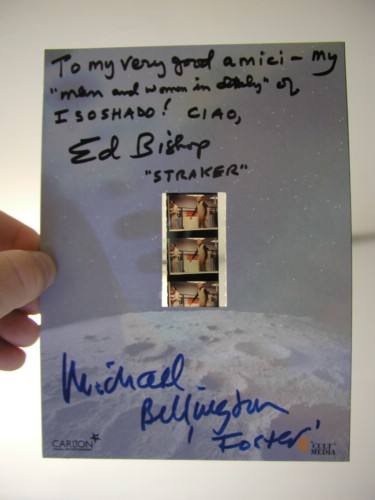 To my very good amici – my
"men and women in Italy" of
ISOSHADO! CIAO,
Ed Bishop
"STRAKER"
Michael
Billington
'Foster'
CARLTON
CULT
MEDIA